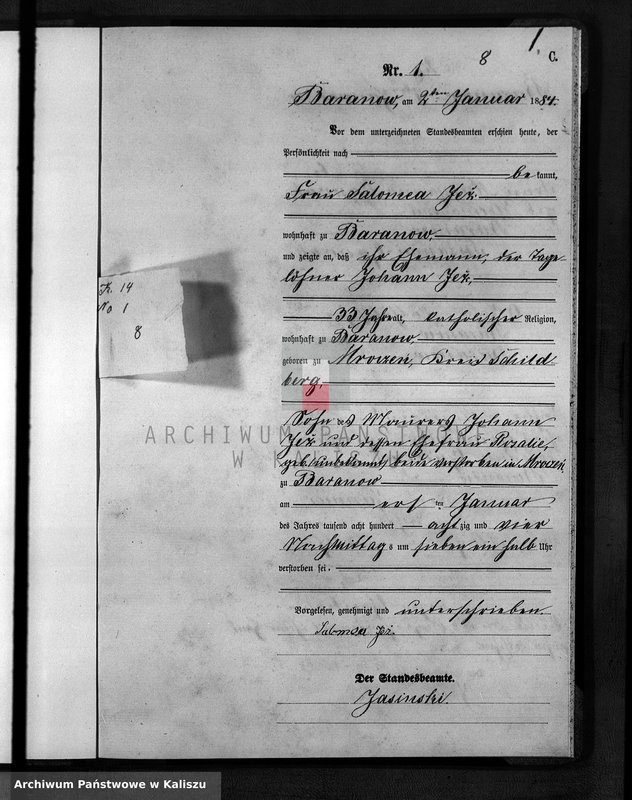 8
C.
Nr. 1.
Baranow, am 2ten Januar 1884.
Vor dem unterzeichneten Standesbeamten erschien heute, der
Persönlichkeit nach
bekannt,
Frau Salomea Jeż.
wohnhaft zu Baranow,
und zeigte an, daß ihr Ehemann, der Tage
löhner Johann Jeż,
33 Jahre alt, katholischer Religion,
wohnhaft zu Baranow
geboren zu Mroczen, Kreis Schild
berg,
K. 14
No 1
8
Sohn des Maurers Johann
Jeż und dessen Ehefrau Rozalie,
geb. unbekannt beide verstorben in Mroczen,
zu Baranow
am ersten Januar
des Jahres tausend acht hundert achtzig und vier
Nachmittags um sieben ein halb Uhr
verstorben sei.
Vorgelesen, genehmigt und unterschrieben
Salomea Jeż.
Der Standesbeamte.
Jasinski.
ARCHIWUM PAŃSTWOWE
W KALISZU
Archiwum Państwowe w Kaliszu